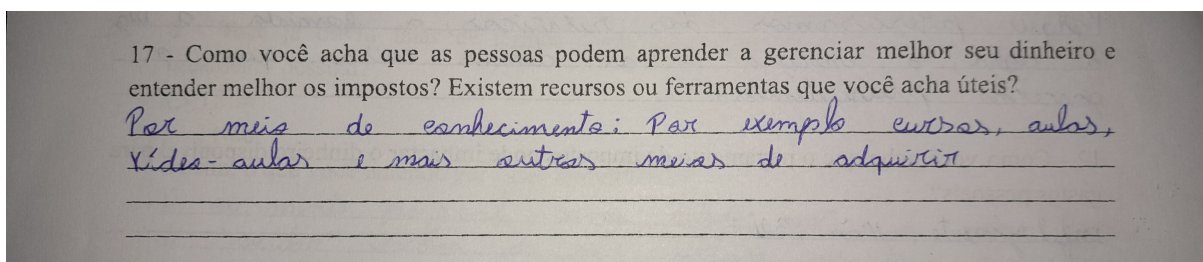 17 - Como você acha que as pessoas podem aprender a gerenciar melhor seu dinheiro e
entender melhor os impostos? Existem recursos ou ferramentas que você acha úteis?
Por meio de conhecimento; Por exemplo cursos, aulas,
Vídeo-aulas e mais outros meios de adquirir